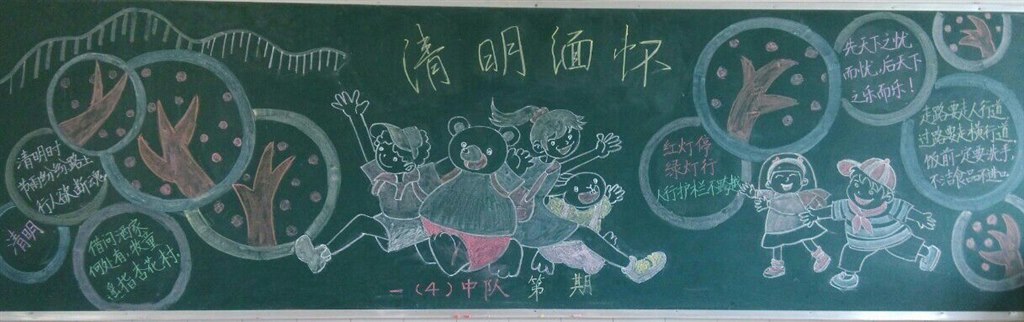 清明缅怀
清明时
节雨纷纷,路上
行人欲断魂。
清明
借问酒家
何处有,牧童
遥指杏花村。
红灯停
绿灯行
人行护栏不跨越
先天下之忧
而忧,后天下
之乐而乐!
走路要走人行道
过路要走横行道
饭前一定要洗手
不洁食品不进口
一(4)中队 第 期